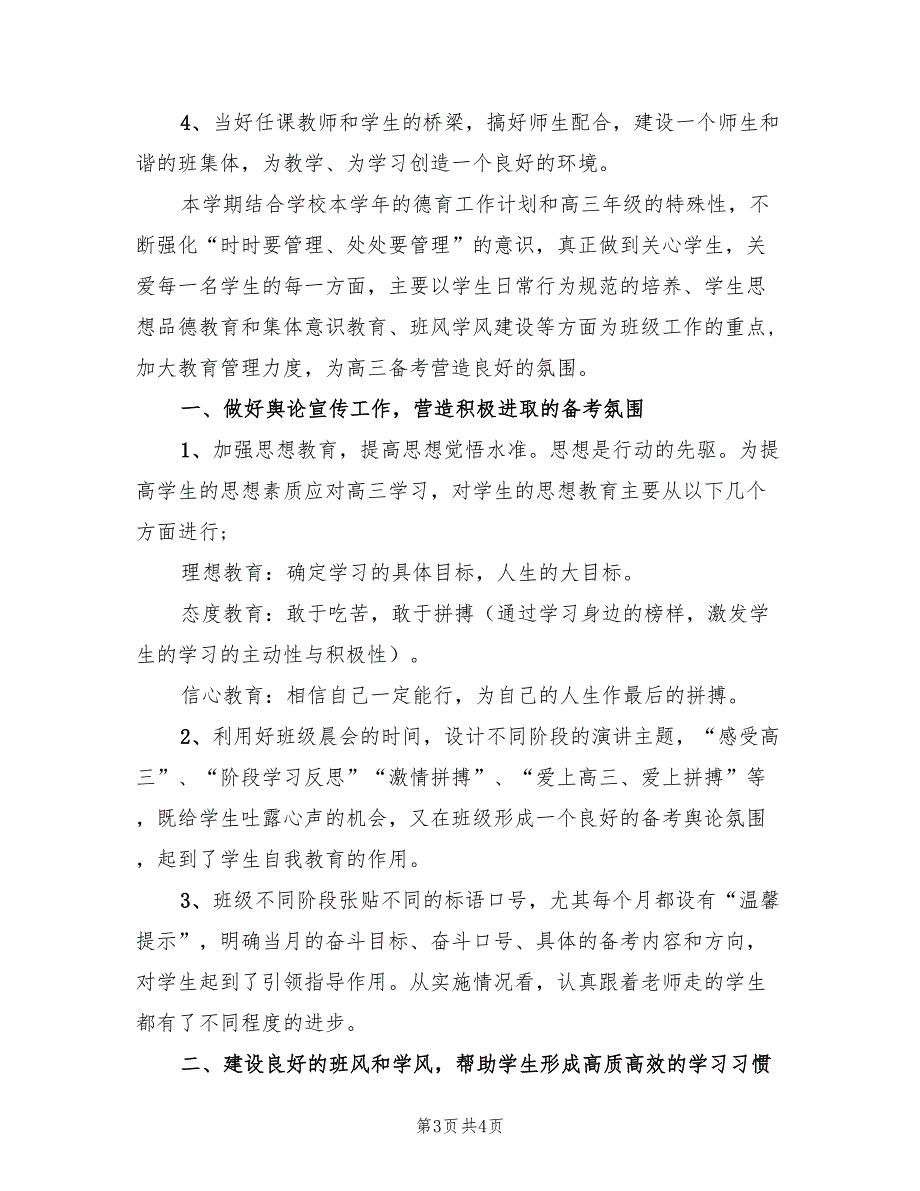 4、当好任课教师和学生的桥梁，搞好师生配合，建设一个师生和
谐的班集体，为教学、为学习创造一个良好的环境。
本学期结合学校本学年的德育工作计划和高三年级的特殊性，不
断强化“时时要管理、处处要管理”的意识，真正做到关心学生，关
爱每一名学生的每一方面，主要以学生日常行为规范的培养、学生思
想品德教育和集体意识教育、班风学风建设等方面为班级工作的重点，
加大教育管理力度，为高三备考营造良好的氛围。
一、做好舆论宣传工作，营造积极进取的备考氛围
1、加强思想教育，提高思想觉悟水准。思想是行动的先驱。为提
高学生的思想素质应对高三学习，对学生的思想教育主要从以下几个
方面进行;
理想教育：确定学习的具体目标，人生的大目标。
态度教育：敢于吃苦，敢于拼搏（通过学习身边的榜样，激发学
生的学习的主动性与积极性）。
信心教育：相信自己一定能行，为自己的人生作最后的拼搏。
2、利用好班级晨会的时间，设计不同阶段的演讲主题，“感受高
三”、“阶段学习反思”“激情拼搏”、“爱上高三、爱上拼搏”等
，既给学生吐露心声的机会，又在班级形成一个良好的备考舆论氛围
，起到了学生自我教育的作用。
3、班级不同阶段张贴不同的标语口号，尤其每个月都设有“温馨
提示”，明确当月的奋斗目标、奋斗口号、具体的备考内容和方向，
对学生起到了引领指导作用。从实施情况看，认真跟着老师走的学生
都有了不同程度的进步。
二、建设良好的班风和学风，帮助学生形成高质高效的学习习惯
第3页共4页